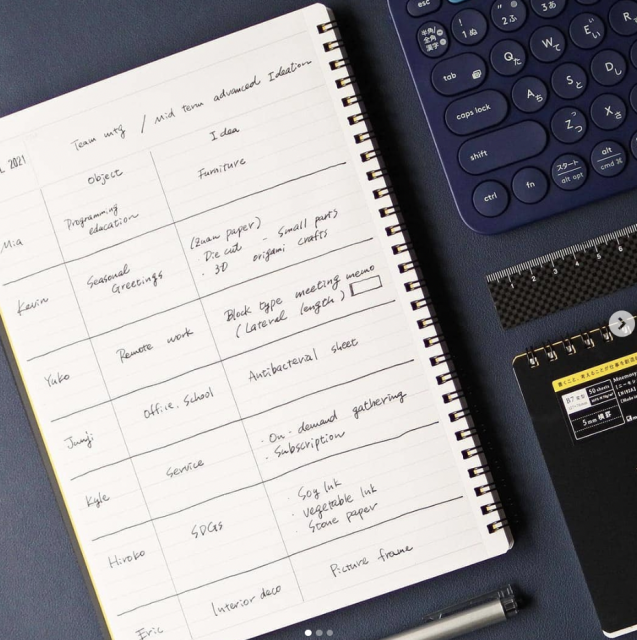 Team mtg / Mid term advanced Ideation
2021
Object
Idea
Mia
Programming
education
Furniture
Kevin
Seasonal
Greetings
(Zuan paper)
Die cut - Small parts
· 3D origami crafts
Yuko
Remote work
Block type meeting memo
(Lateral length)
Junji
Office, School
Antibacterial sheet
Kyle
Service
· On-demand gathering
· Subscription
Hiroko
SDGs
· Soy Ink
· Vegetable Ink
· Stone paper
Eric
Interior deco
Picture frame
esc
半角/
全角
漢字
1 ぬ
2 ふ
3 あ
tab
Q た
W て
E い
R
caps lock
A ち
S と
D し
shift
Z つ
X さ
ctrl
fn
スタート
alt opt
alt
cmd ⌘
1 2 3 4 5 6
50 sheets
5mm 横罫